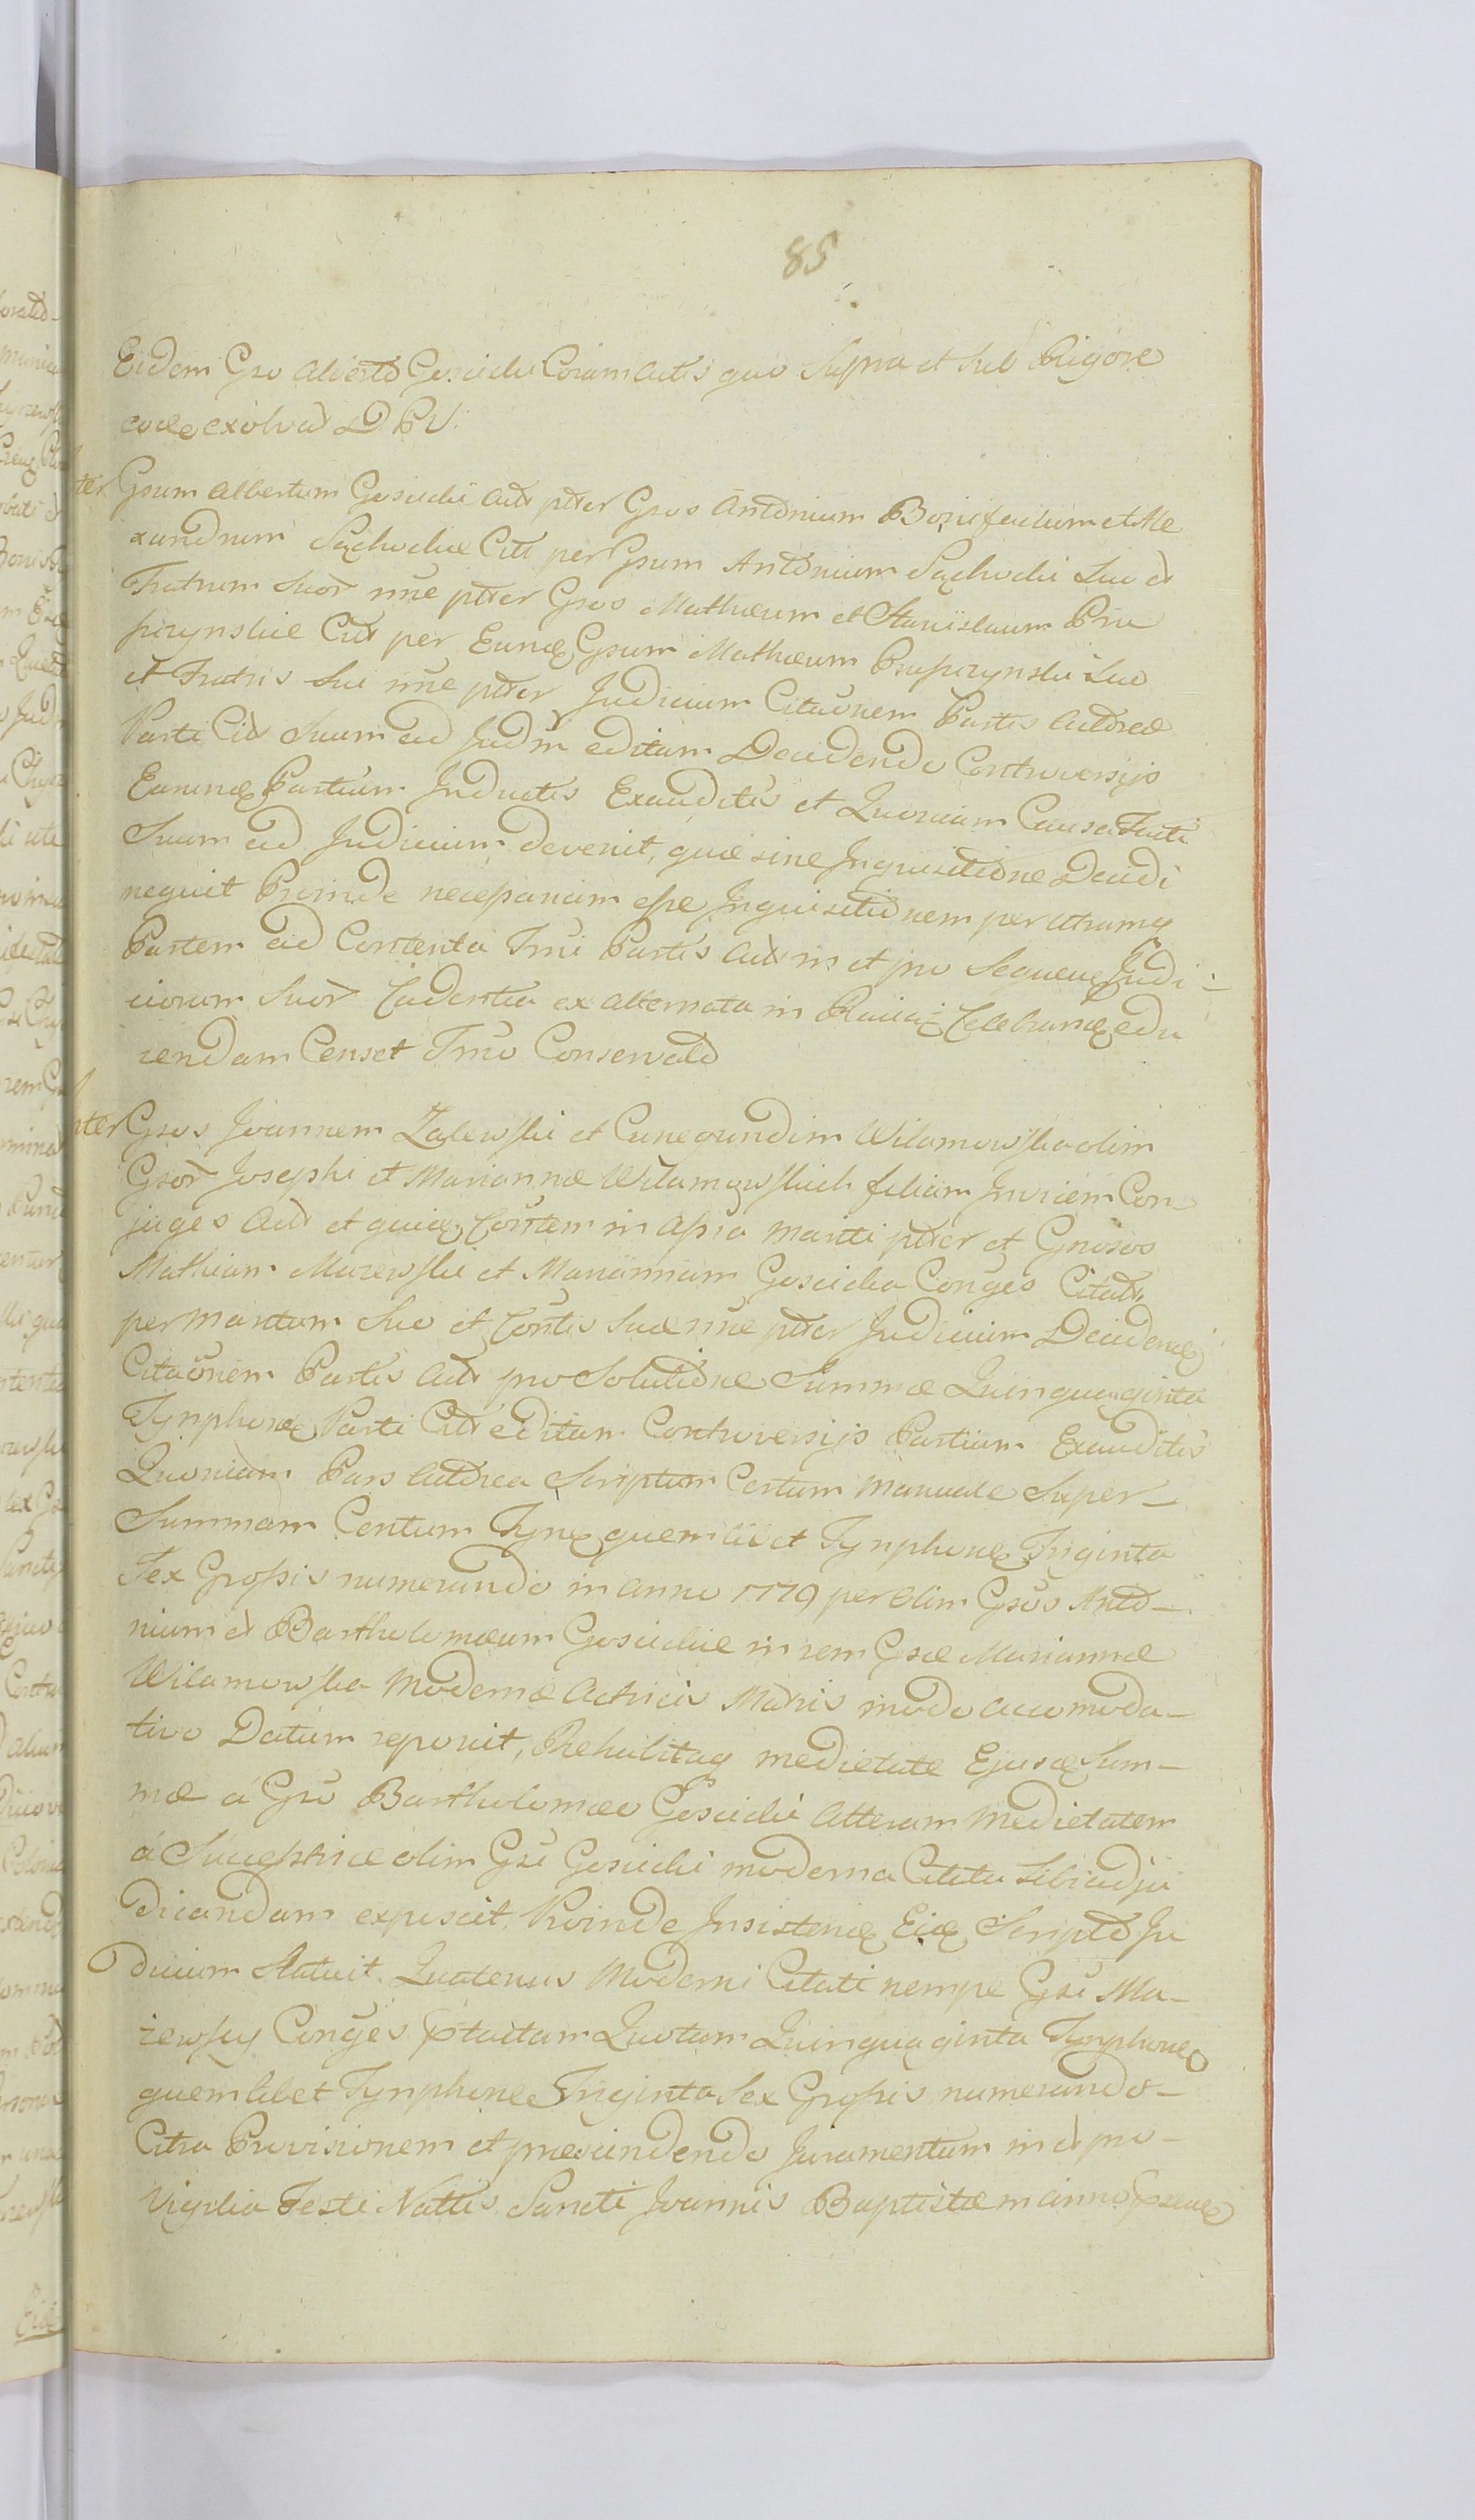 85
Eidem Gso Alberto Gosicki Coram actis quo Supra et sub Rigore
exolvat D P V.
ter Gsum Albertum Gosicki Act pter Gsos Antonium Bonifacium et Ale
xandrum Sachockie Citt per Gsum Antonium Sachocki Suo et
Fratrum Suor nne pter Gsos Mathæum et Stanislaum Pru
szynskie Citt per Eund Gsum Mathæum Pruszynski Suo
et Fratris Sui nne pter Judicium Citaonem Partis Actoreæ
Parti Cit Suum ad Judm editam Decidendo Controversijs
Earund Partium Inductis Exauditis et Quoniam Causa Facti
Suum ad Judicium devenit, quæ sine Inquisitione Decidi
nequit Proinde necessariam esse Inquisitionem per utramq
Partem ad Contenta Tmi Partis Act in et pro Sequen Judi-
ciorum Suor Cadentia ex alternata in Celebrand edu
cendam Censet Tmo Conservato
nter Gsos Joannem Zalewski et Cunegundim Wilamowska olim
Gsor Josephi et Mariannæ Wilamowskich filiam Invicem Con
juges Act et quid Consortem in assa mariti pter et Gnosos
Mathiam Murewski et Mariannam Gosicka Conges Citat
per Maritum Suo et Consortis Suæ nne pter Judicium Deciden
Citaonem Partis Act pro Solutione Summæ Quinquaginta
Tynphon Parti Cit editam Controversijs Partium Exauditis
Quoniam Pars Actorea Scriptum Certum Manuale Super-
Summam Centum Tyn quemlibet Tynphon Triginta
Sex Grossis numerando in anno 1779 per olim Gsos Anto-
nium et Bartholomæum Gosickie in rem Gsæ Mariannæ
Wilamowska Modernæ Actricis Matris modo accomoda-
tivo Datum reponit, Rehabitaq medietate Ejusd Sum-
mæ á Gso Bartholomæo Gosicki Alteram Medietatem
á Succestrice olim Gsi Gosicki moderna Citata Sibi adju
dicandam exposcit, Proinde Insistend Eid Scripto Ju
dicium Statuit Quatenus Moderni Citati nempe Gsi Mu-
rewscy Conges Quotam Quinquaginta Tynphon
quemlibet Tynphon Triginta Sex Grossis numerando-
Citra Provisionem et præscindendo Juramentum in et pro-
Vigilia Festi Nattis Sancti Joannis Baptistæ in anno
Eid